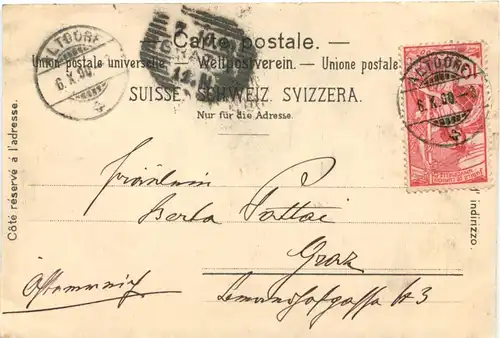 Carte postale. —
Union postale universelle. — Weltpostverein. — Unione postale
SUISSE. SCHWEIZ. SVIZZERA.
Nur für die Adresse.
Côté réservé à l'adresse.
indirizzo.
ALTDORF
6.X.00
ALTDORF
6.X.00
Fräulein
Berta Pottai
Graz
Österreich
3